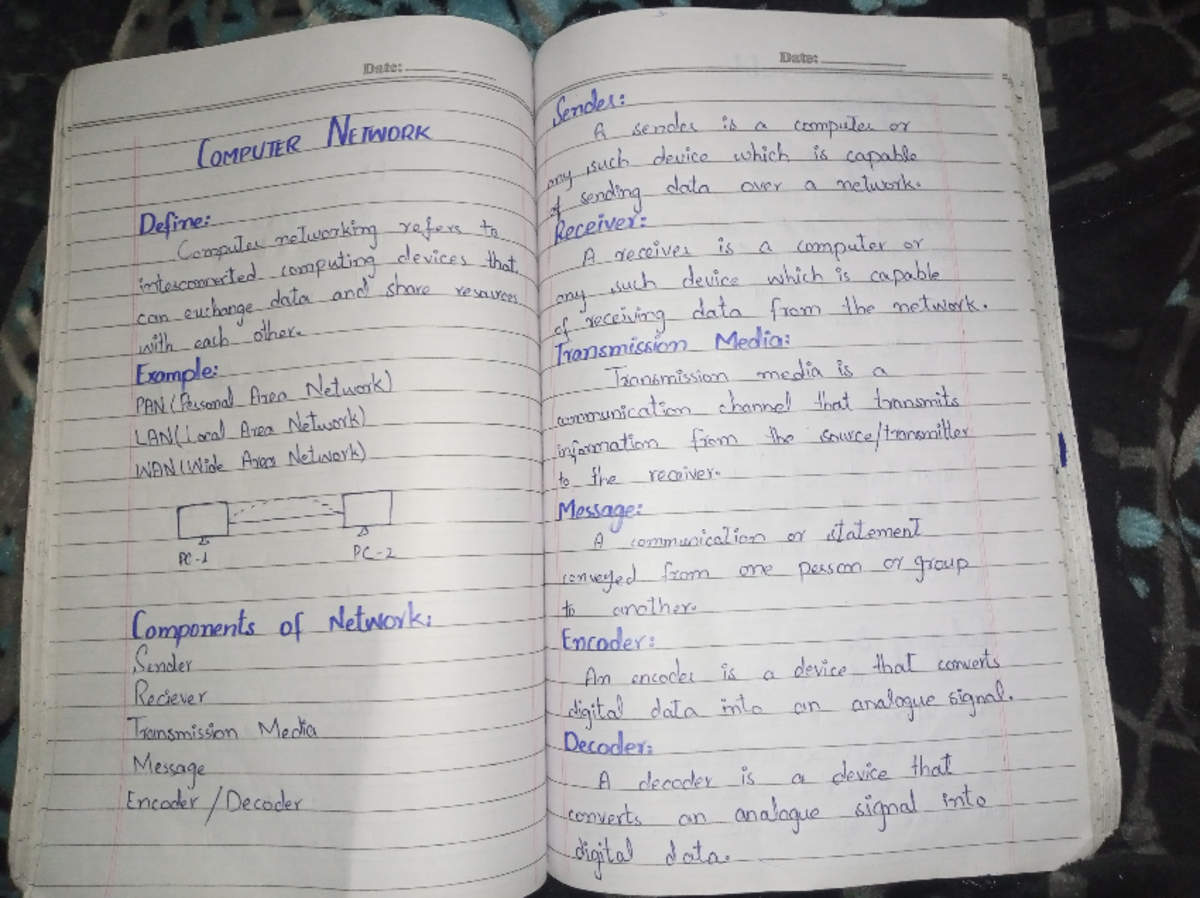 Date:
COMPUTER NETWORK
Define:
Computer networking refers to
interconnected computing devices that
can exchange data and share resources
with each other.
Example:
PAN (Personal Area Network)
LAN (Local Area Network)
WAN (Wide Area Network)
PC-1
PC-2
Components of Network:
Sender
Reciever
Transmission Media
Message
Encoder / Decoder
Date:
Sender:
A sender is a computer or
any such device which is capable
of sending data over a network.
Receiver:
A receiver is a computer or
any such device which is capable
of receiving data from the network.
Transmission Media:
Transmission media is a
communication channel that transmits
information from the source/transmitter
to the receiver.
Message:
A communication or statement
conveyed from one person or group
to another.
Encoder:
An encoder is a device that converts
digital data into an analogue signal.
Decoder:
A decoder is a device that
converts an analogue signal into
digital data.